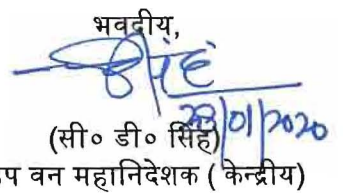 भवदीय,
23/01/2020
(सी० डी० सिंह)
वन महानिदेशक ( केन्द्रीय)